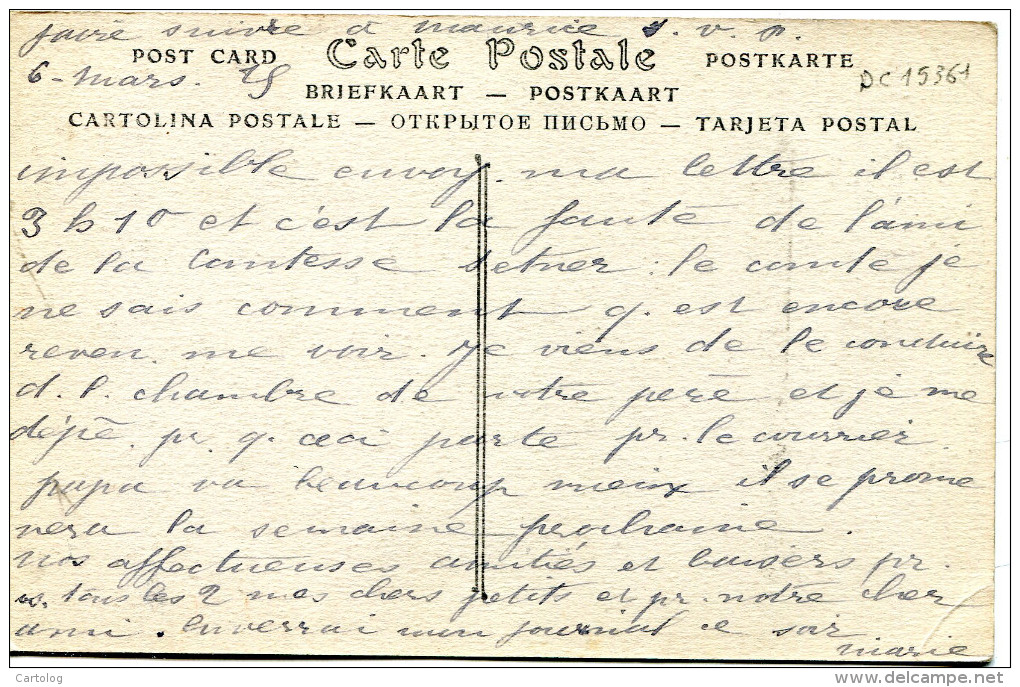 faire suivre à maurice s. v. p.
POST CARD Carte Postale POSTKARTE
6 - mars. 15
DC 15361
BRIEFKAART — POSTKAART
CARTOLINA POSTALE — ОТКРЫТОЕ ПИСЬМО — TARJETA POSTAL
impossible envoy. ma lettre il est
3 h 10 et c'est la faute de l'ami
de la Comtesse le comte je
ne sais comment q. est encore
reven. me voir. Je viens de le conduire
d. l. chambre de notre père et je me
dépê. pr. q. ceci parte pr. le courrier
papa va beaucoup mieux il se promè
nera la semaine prochaine.
nos affectueuses amitiés et baisers pr.
vs. tous les 2 mes chers petits et pr. notre cher
ami. enverrai mon journal ce soir
marie
Cartolog
www.delcampe.net